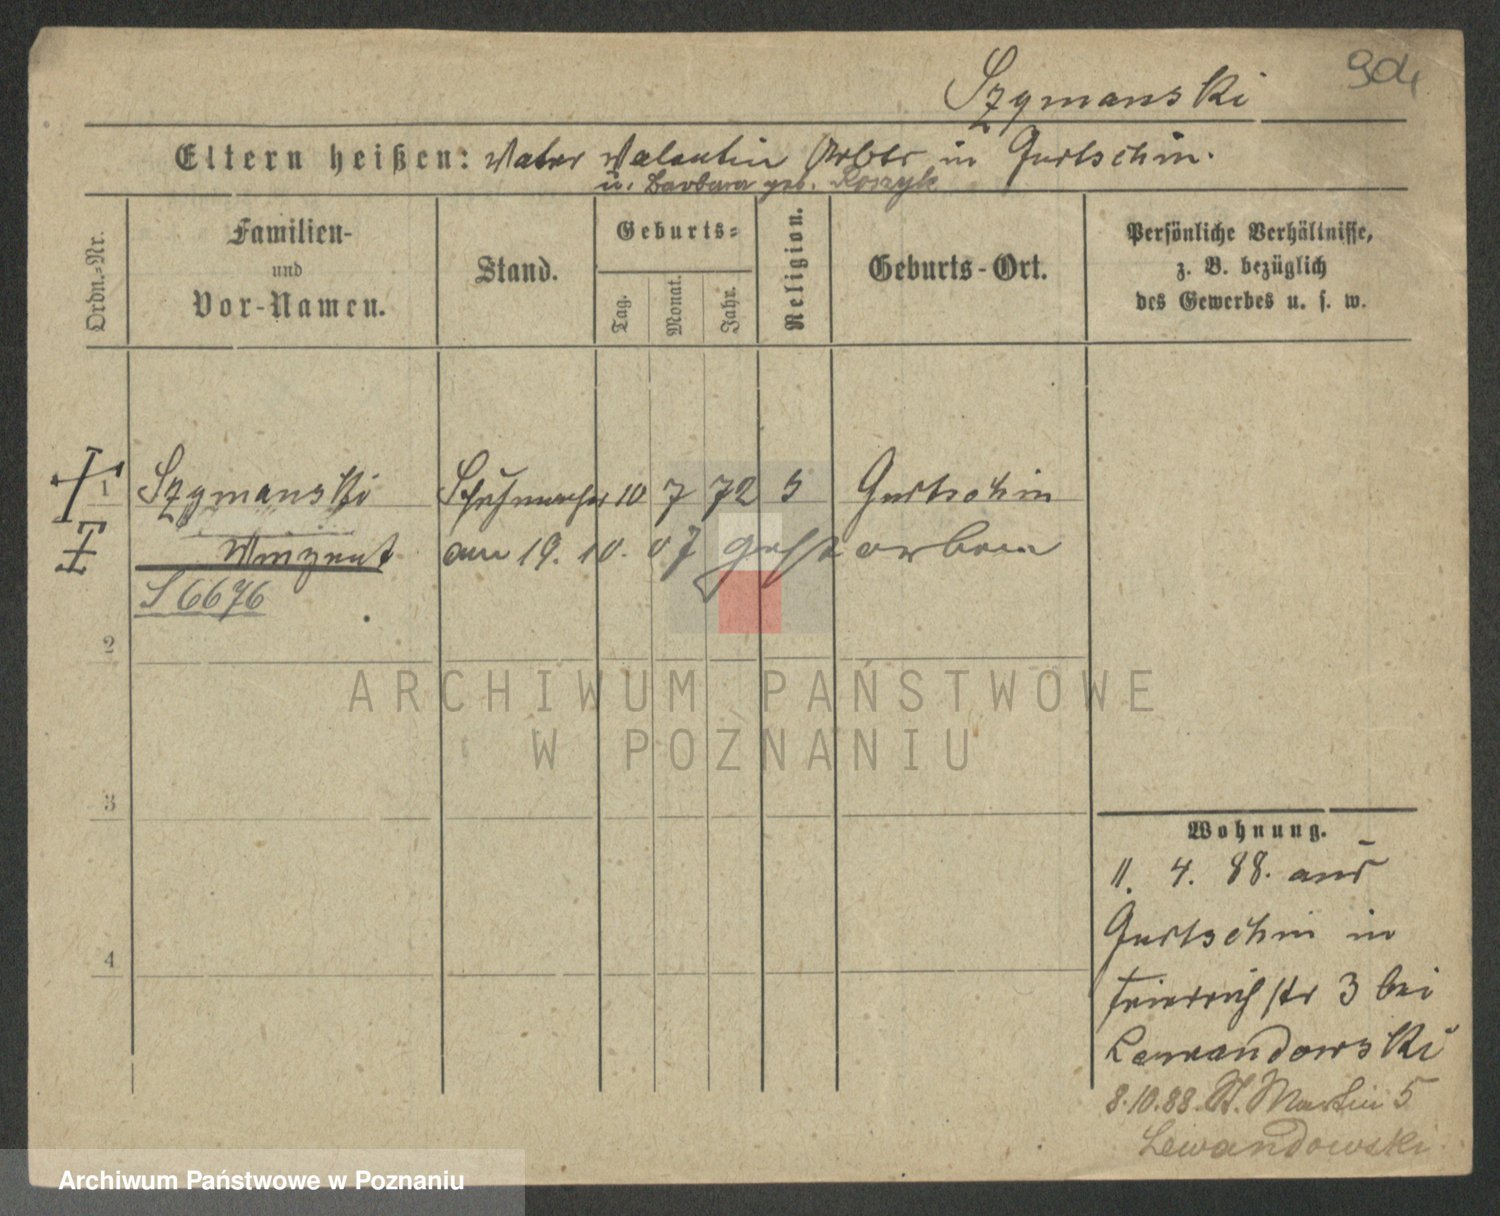 Szymanski
904
Eltern heißen: Vater Valentin Arbtr in Gurtschin.
u. Barbara geb. Koszyk
Ordn.-Nr.
Familien-
und
Vor-Namen.
Stand.
Geburts-
Tag.
Monat.
Jahr.
Religion.
Geburts-Ort.
Persönliche Verhältnisse,
z. B. bezüglich
des Gewerbes u. s. w.
1 Szymanski Schuhmacher 10 7 72 Gurtschin
Vinzent am 19. 10. 07 gestorben
S 6676
2
3
4
ARCHIWUM PAŃSTWOWE
W POZNANIU
Wohnung.
11. 4. 88. aus
Gurtschin in
str 3 bei
Lewandowski
8.10.88. St. Martin 5
Lewandowski
Archiwum Państwowe w Poznaniu